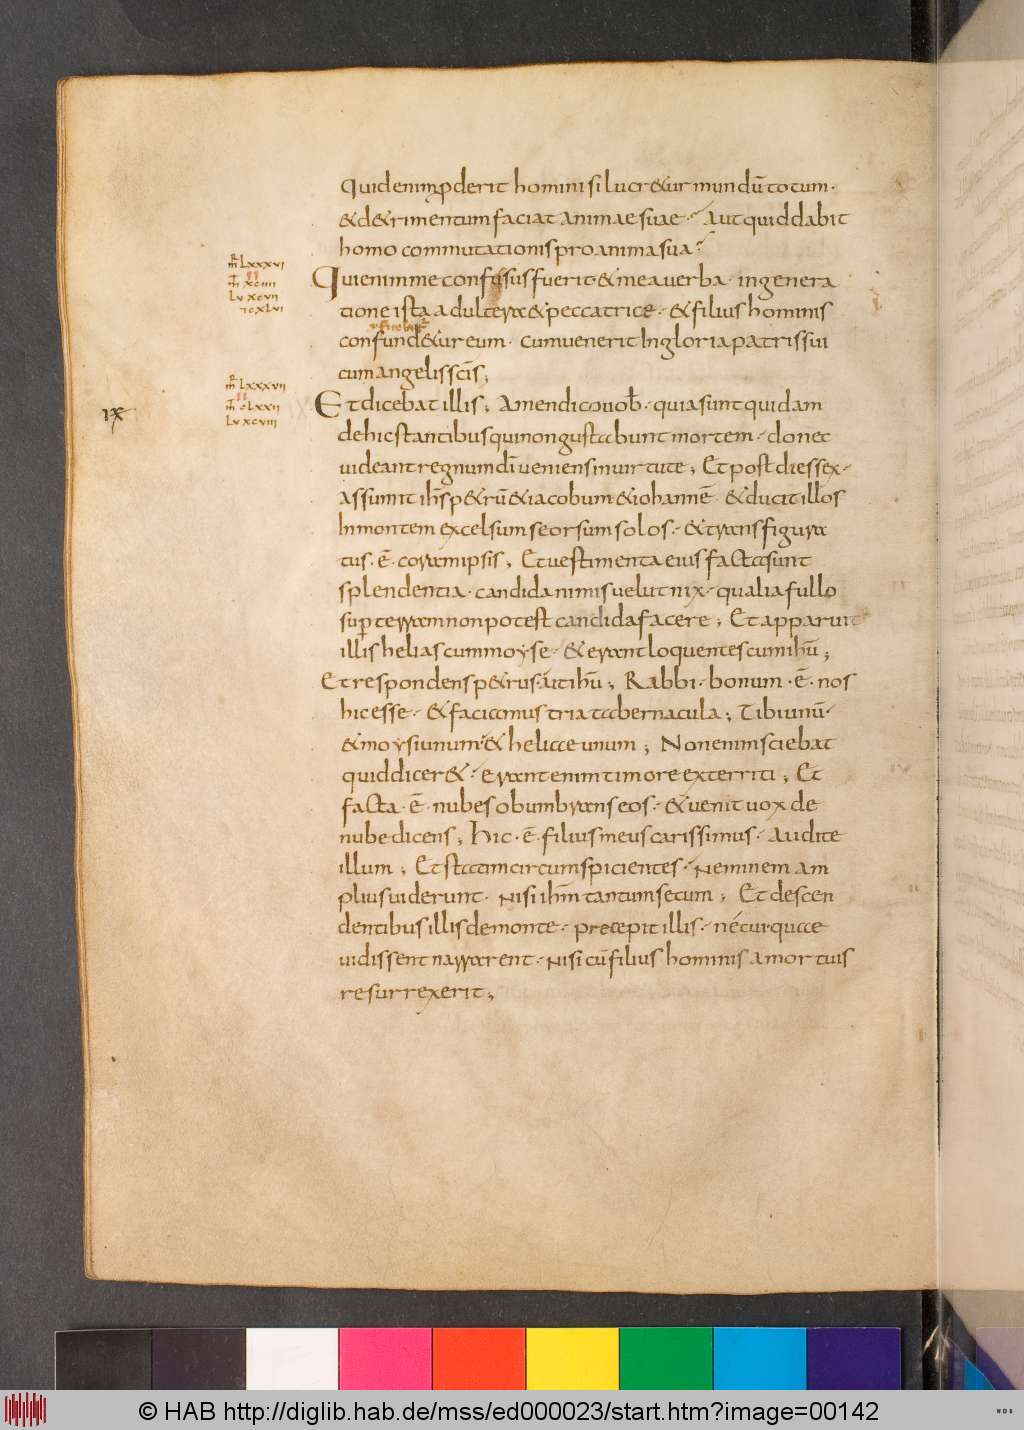 Quidenimꝓderit homini si lucr&ur mundū totum·
&d&rimentum faciat animae suae· Aut quid dabit
homo commutationis pro anima sua?
m̄ Lxxxvi
Qui enim me confusus fuerit· & mea uerba· in genera
Lv xcvii
tione ista adultera & peccatrice· & filius hominis
confund&ur eum· cum uenerit In gloria patris sui
cum angelis sc̄is;
m̄ Lxxxvii
Et dicebat illis; Amen dico uob̄· quia sunt quidam
Lv xcviii
de hic stantibus qui non gustabunt mortem· donec
uideant regnum dī ueniens in uirtute; Et post dies sex·
Assumit ih̄s p&rū & iacobum & iohannē· & ducit illos
In montem excelsum seorsum solos· & transfigura
tus·ē· coram ipsis; Et uestimenta eius facta sunt
splendentia· candida nimis uelut nix· qualia fullo
suꝑ terram non potest candida facere; Et apparuit
illis helias cum moyse· & erant loquentes cum ih̄u;
Et respondens p&rus· āit ih̄u; Rabbi· bonum·ē· nos
hic esse· & faciamus tria tabernacula; Tibi unū·
& moysi unum· & heliae unum; Non enim sciebat
quid dicer&· erant enim timore exterriti; Et
facta·ē· nubes obumbrans eos· & uenit uox de
nube dicens; Hic·ē· filius meus carissimus· Audite
illum; Et statim circumspicientes· Neminem am
plius uiderunt· Nisi ih̄m tantum secum; Et descen
dentibus illis de monte· precepit illis· ne cui quae
uidissent narrarent· Nisi cū filius hominis a mortuis
resurrexerit;
© HAB http://diglib.hab.de/mss/ed000023/start.htm?image=00142